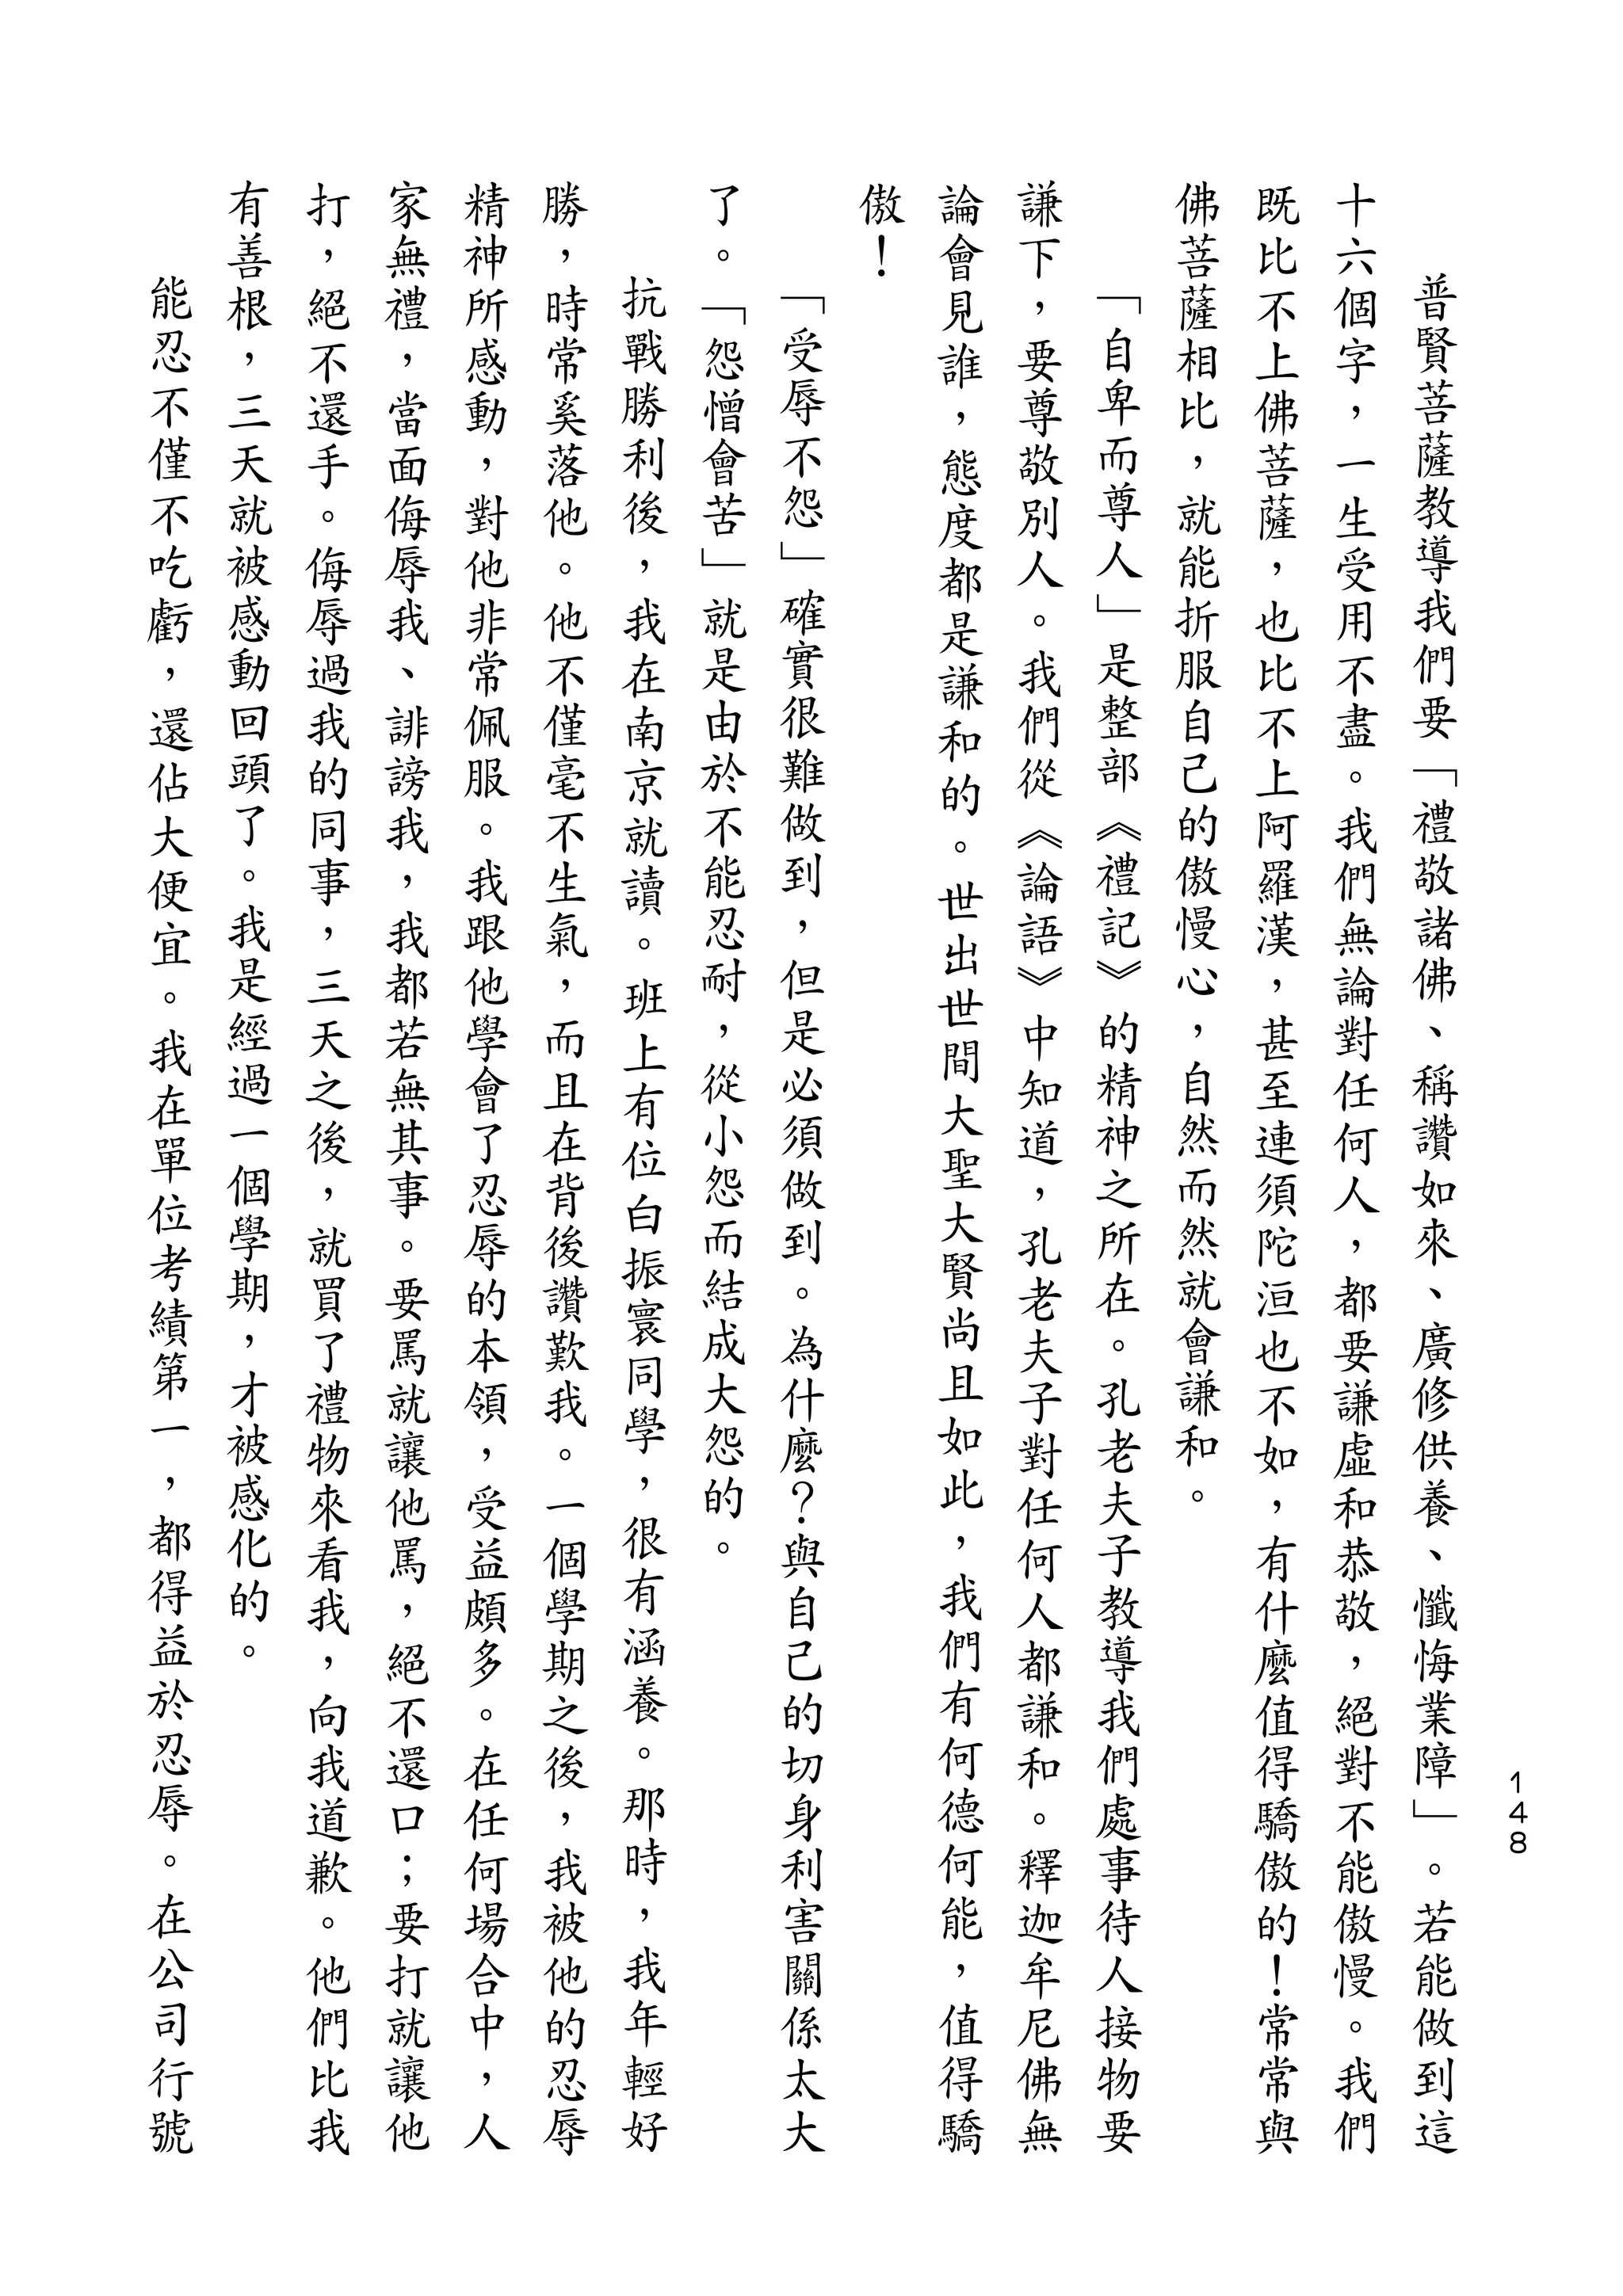 148
普賢菩薩教導我們要「禮敬諸佛、稱讚如來、廣修供養、懺悔業障」。若能做到這
十六個字，一生受用不盡。我們無論對任何人，都要謙虛和恭敬，絕對不能傲慢。我們
既比不上佛菩薩，也比不上阿羅漢，甚至連須陀洹也不如，有什麼值得驕傲的！常常與
佛菩薩相比，就能折服自己的傲慢心，自然而然就會謙和。
「自卑而尊人」是整部《禮記》的精神之所在。孔老夫子教導我們處事待人接物要
謙下，要尊敬別人。我們從《論語》中知道，孔老夫子對任何人都謙和。釋迦牟尼佛無
論會見誰，態度都是謙和的。世出世間大聖大賢尚且如此，我們有何德何能，值得驕
傲！
「受辱不怨」確實很難做到，但是必須做到。為什麼？與自己的切身利害關係太大
了。「怨憎會苦」就是由於不能忍耐，從小怨而結成大怨的。
抗戰勝利後，我在南京就讀。班上有位白振寰同學，很有涵養。那時，我年輕好
勝，時常奚落他。他不僅毫不生氣，而且在背後讚歎我。一個學期之後，我被他的忍辱
精神所感動，對他非常佩服。我跟他學會了忍辱的本領，受益頗多。在任何場合中，人
家無禮，當面侮辱我、誹謗我，我都若無其事。要罵就讓他罵，絕不還口；要打就讓他
打，絕不還手。侮辱過我的同事，三天之後，就買了禮物來看我，向我道歉。他們比我
有善根，三天就被感動回頭了。我是經過一個學期，才被感化的。
能忍不僅不吃虧，還佔大便宜。我在單位考績第一，都得益於忍辱。在公司行號